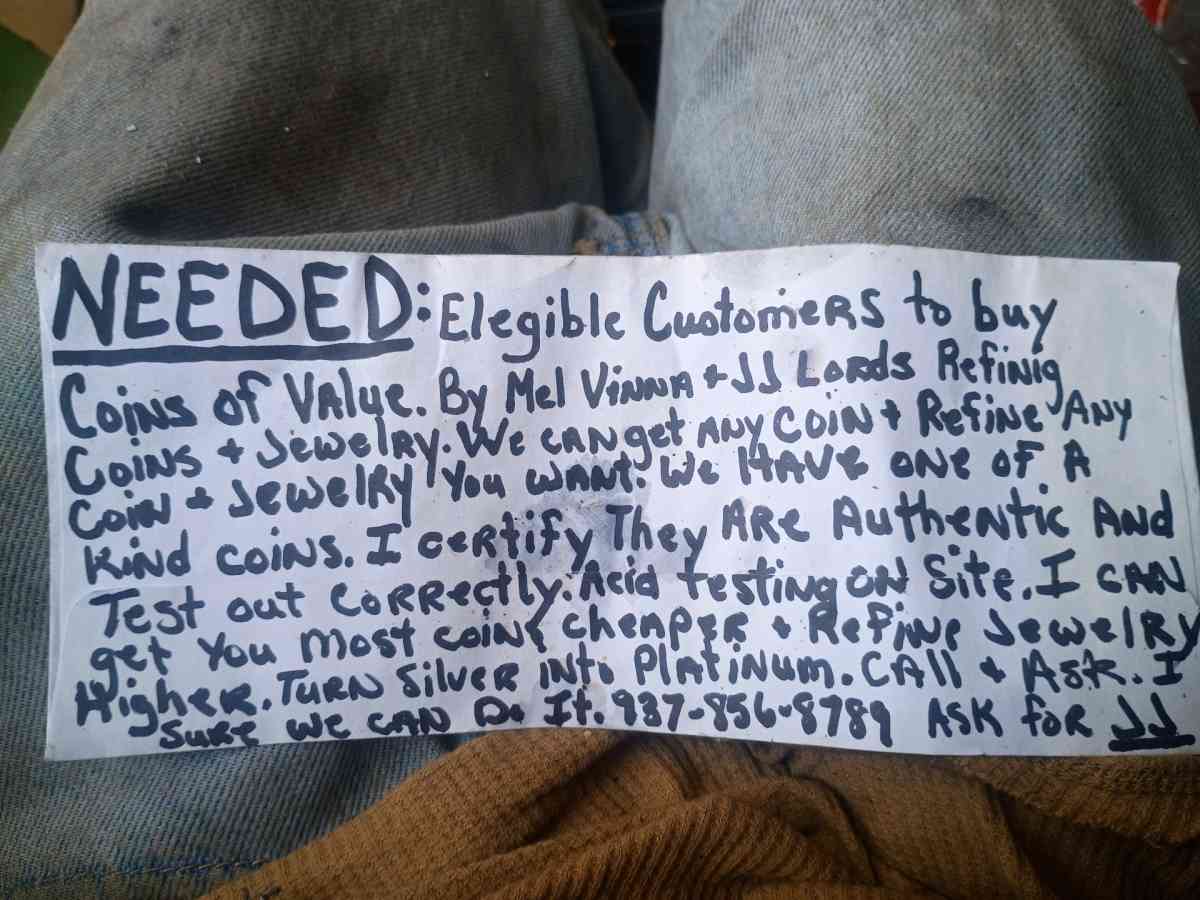 NEEDED: Elegible Customers to buy
Coins of Value. By Mel Vinna + JJ Lords Refinig
Coins + Jewelry. We can get any coin + Refine Any
Coin + Jewelry You want. We Have one of A
kind coins. I certify They Are Authentic And
Test out correctly. Acid testing on Site. I can
get You most coins cheaper + Refine Jewelry
Higher. Turn Silver into Platinum. Call + Ask. I
sure we can Do It. 937-856-8789 Ask for JJ